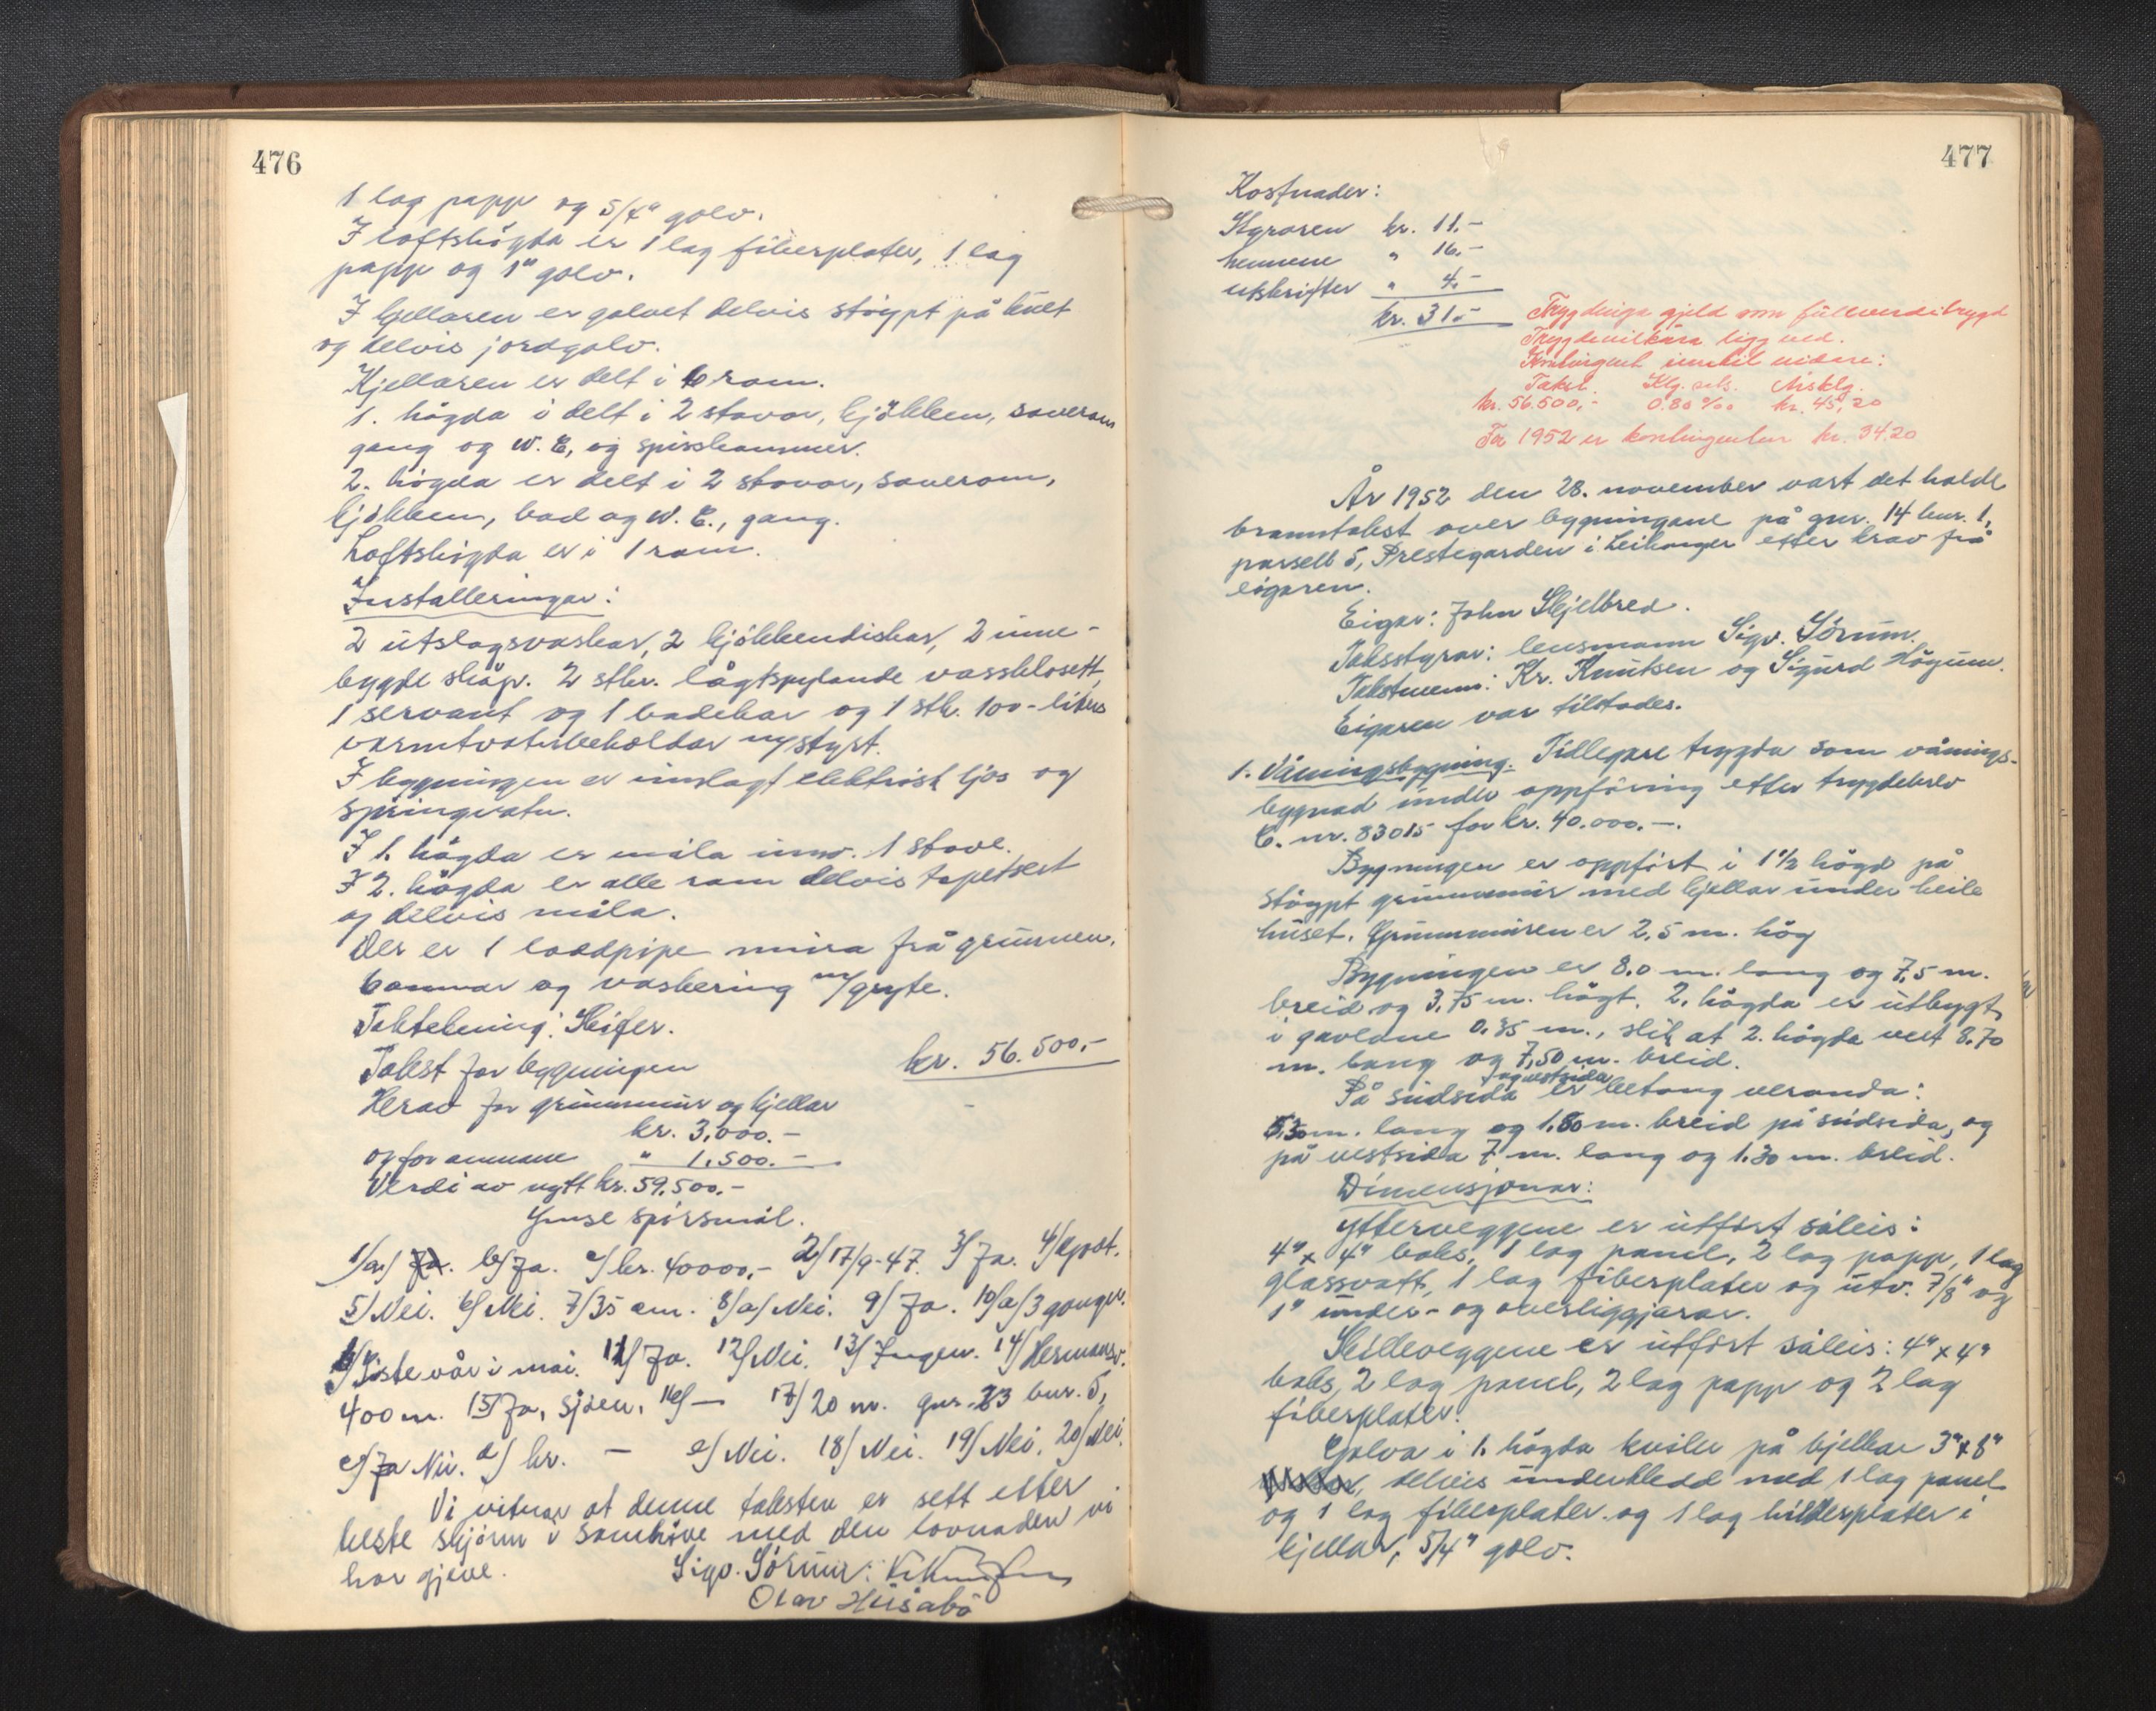 476
1 lag papp og 5/4" golv.
I loftshögda er 1 lag fiberplater, 1 lag
papp og 1" golv.
I kjellaren er golvet delvis stöypt på kult
og delvis jordgolv.
Kjellaren er delt i 6 rom.
1. högda i delt i 2 stovor, kjökken, soverom
gang og W.C, og spisskammer.
2. högda er delt i 2 stovor, soverom,
kjökken, bad og W.C., gang.
Loftshögda er i 1 rom.
Installeringar:
2 utslagsvaskar, 2 kjökkendiskar, 2 inne-
bygde skåp. 2 stkr. lågtspylande vassklosett,
1 servant og 1 badekar og 1 stk. 100-liters
varmtvatnbeholdar m/styrt.
I bygningen er innlagt elektrisk ljos og
springvatn.
I 1. högda er måla innv. 1 stove.
I 2. högda er alle rom delvis tapetsert
og delvis måla.
Der er 1 loddpipe mura frå grunnen.
6 omnar og vaskering m/gryte.
Taktekning: Skifer.
Takst for bygningen kr. 56.500,-
Herav for grunnmur og kjellar
kr. 3.000.-
og for omnane " 1.500.-
Verdi av nytt kr. 59.500.-
Ymse spörsmål.
1/a/ Ja. b/ Ja. c/ kr. 40000,- 2/ 17/9-47. 3/ Ja. 4/
5/ Nei. 6/ Nei. 7/ 35 cm. 8/a/ Nei. 9/ Ja. 10/a/ 3 gonger.
b/ Siste vår i mai. 11/ Ja. 12/ Nei. 13/ Ingen. 14/ Hermansv.
400 m. 15/ Ja, sjöen. 16/ — 17/ 20 m. gnr. 23 bnr. 5,
c/ Ja Nei. d/ kr. — e/ Nei. 18/ Nei. 19/ Nei. 20/ Nei.
Vi vitnar at denne taksten er sett etter
beste skjönn i samhöve med den lovnaden vi
har gjeve. Sigv. Sörum: Kr Knutsen
Olav Husabö
477
Kostnader:
Styraren kr. 11.-
mennene " 16.-
utskrifter " 4.-
kr. 31.-
Trygdinga gjeld som fullverditrygd
Trygdevilkåra ligg ved.
Kontingent inntil vidare:
Takst. Klg. sats. Årsklg.
kr. 56.500,- 0.80 ‰ kr. 45,20
For 1952 er kontingenten kr. 34.20
År 1952 den 28. november vart det halde
branntakst over bygningane på gnr. 14 bnr. 1,
parsell 5, Prestegarden i Leikanger etter krav frå
eigaren.
Eigar: John Skjelbred.
Takstyrar: lensmann Sigv. Sörum.
Takstmenn: Kr. Knutsen og Sigurd Högum.
Eigaren var tilstades.
1. Våningsbygning. Tidlegare trygda som vånings-
bygnad under oppföring etter trygdebrev
C. nr. 83015 for kr. 40.000.-.
Bygningen er oppfört i 1 1/2 högd på
stöypt grunnmur med kjellar under heile
huset. Grunnmuren er 2,5 m. hög
Bygningen er 8.0 m. lang og 7,5 m.
breid og 3,75 m. högt. 2. högda er utbygt
i gavlane 0.35 m., slik at 2. högda vert 8.70
m. lang og 7,50 m. breid.
På sudsida og vestsida er betong veranda:
5,30 m. lang og 1.80 m. breid på sudsida, og
på vestsida 7 m. lang og 1.30 m. breid.
Dimensjonar:
Ytterveggene er utfört såleis:
4" x 4" boks, 1 lag panel, 2 lag papp, 1 lag
glassvatt, 1 lag fiberplater og utv. 7/8" og
1" under- og overliggjarar.
Skilleveggene er utfört såleis: 4" x 4"
boks, 2 lag panel, 2 lag papp og 2 lag
fiberplater.
Golva i 1. högda kviler på bjelkar 3" x 8"
delvis underkledd med 1 lag panel
og 1 lag fiberplater og 1 lag hulderplater i
kjellar, 5/4" golv.